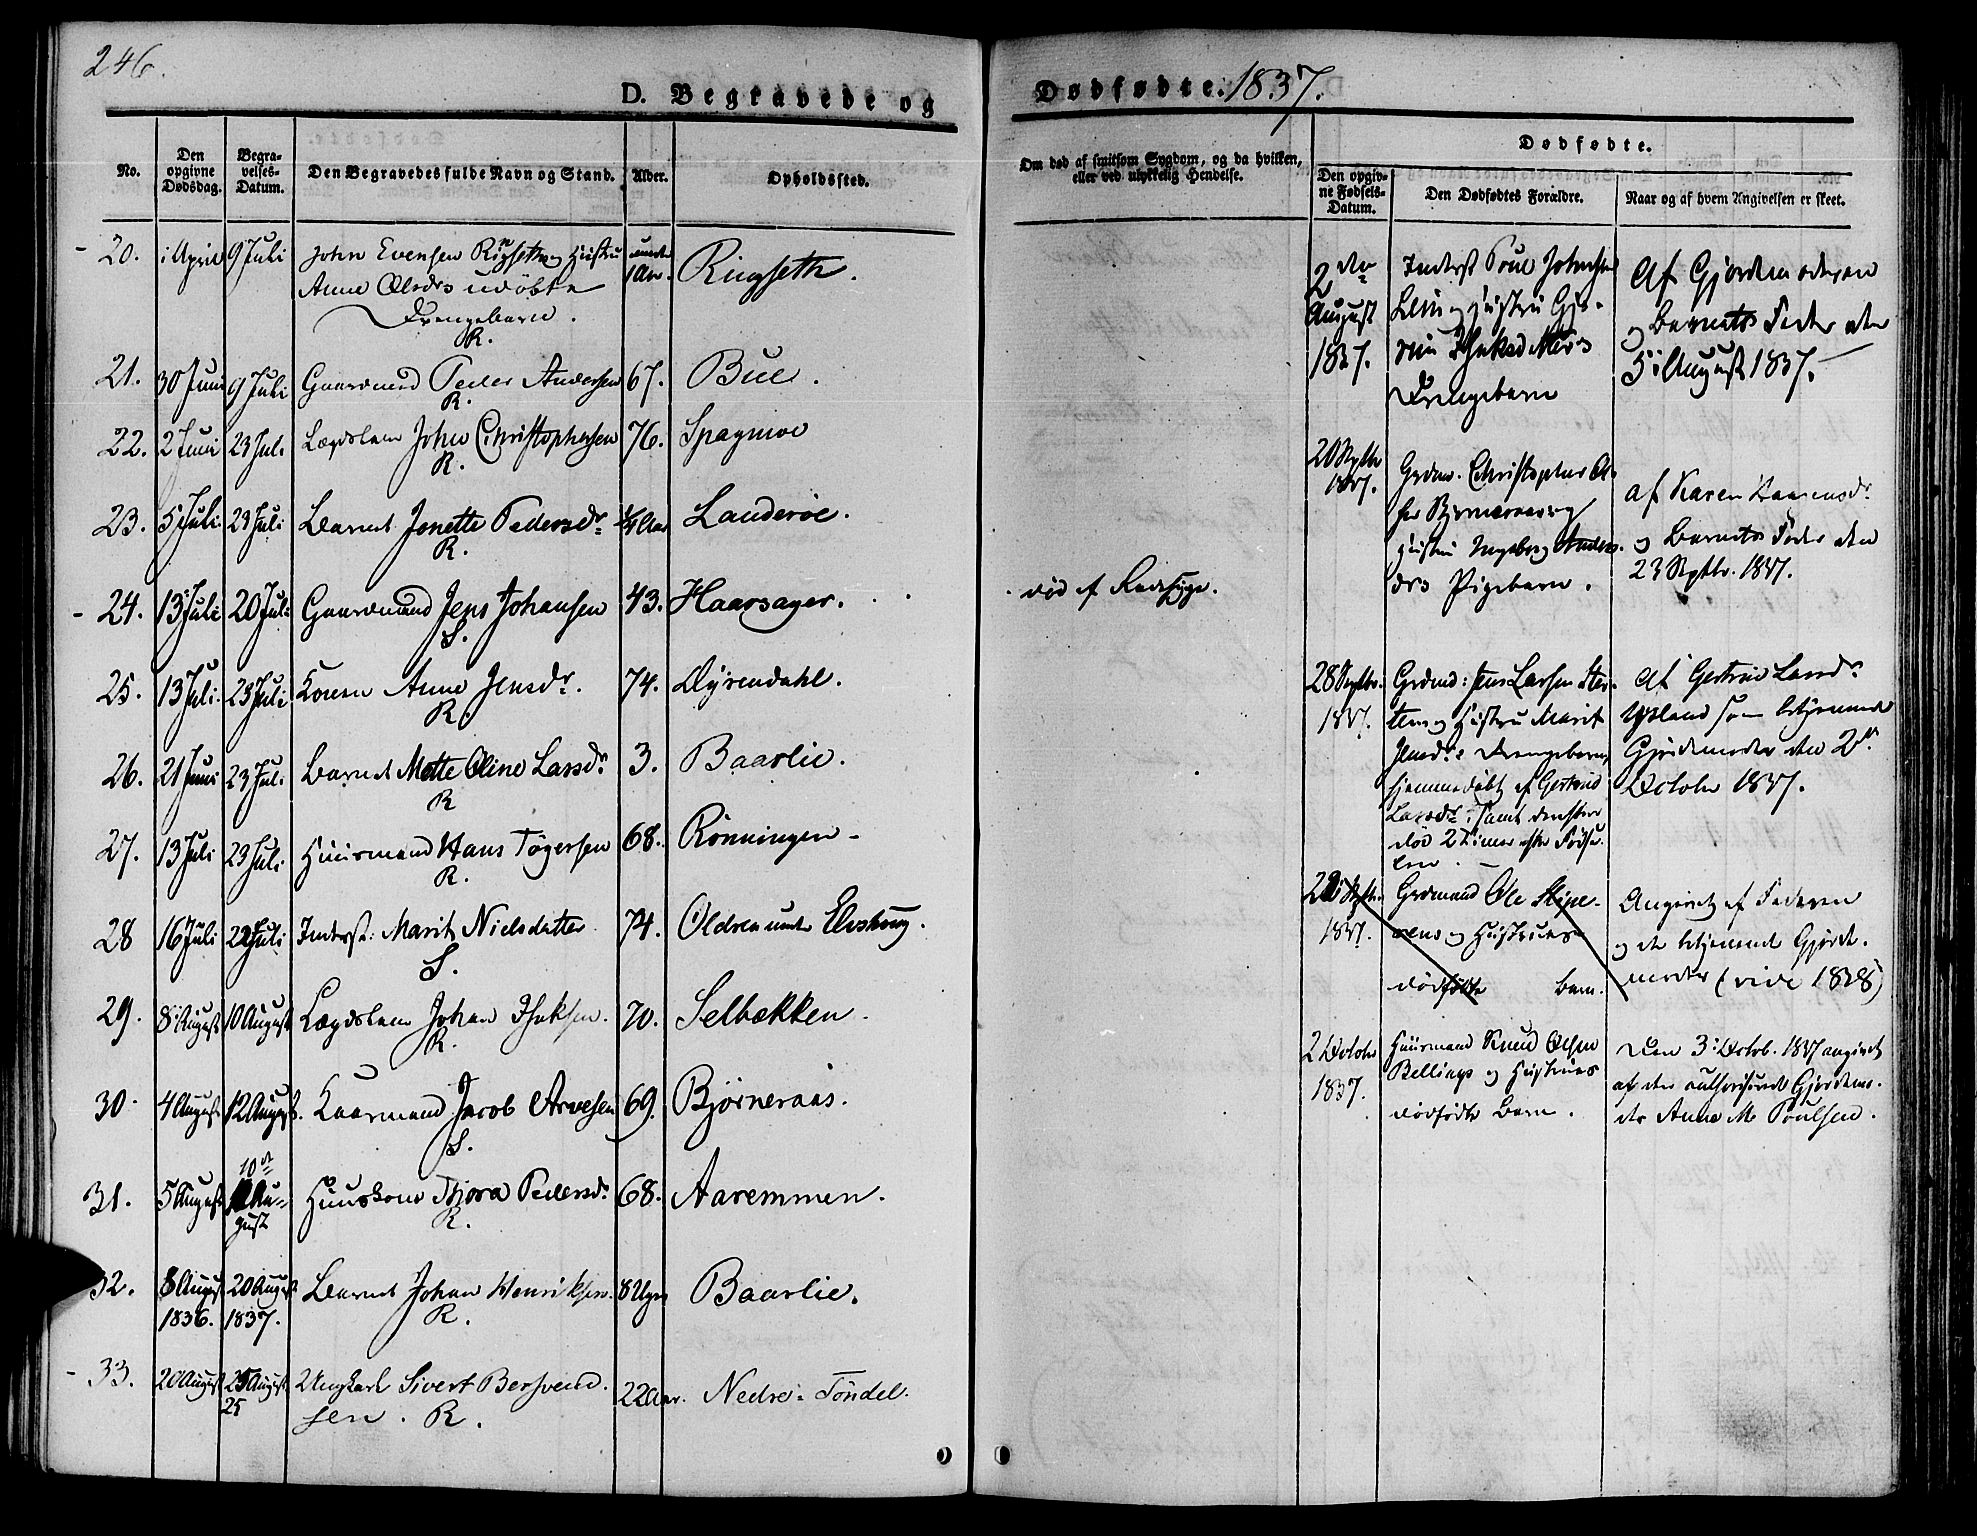 246.
D. Begravede og
Dødfødte. 1837.
No.
Den opgivne Dødsdag.
Begravelses-Datum.
Den Begravedes fulde Navn og Stand.
Alder.
Opholdssted.
Om død af smitsom Sygdom, og da hvilken,
eller ved ulykkelig Hendelse.
Dødfødte.
Den opgivne Fødsels-Datum.
Den Dødfødtes Forældre.
Naar og af hvem Angivelsen er skeet.
20. 1 April 9 Juli John Evensen Ringseth og Hustru under 1 Aar. Ringseth.
Anne Olsdrs udøbte
Drengebarn.
R.
21. 30 Juni 9 Juli Gaardmand Peder Andersen 67. Bue.
R.
22. 2 Juni 23 Juli Lægdslem John Christophersen 76. Spagmoe
R.
23. 5 Juli 23 Juli Barnet Jonette Pedersdr. Aar Landerøe.
R.
24. 13 Juli 20 Juli Gaardmand Jens Johansen 43. Haarsager. død af Radesyge.
S.
25. 13 Juli 23 Juli Konen Anne Jensdr. 74. Dyrendahl.
R.
26. 21 Juni 23 Juli Barnet Mette Oline Larsdr. 3. Baarlie.
R
27. 13 Juli 23 Juli Huusmand Hans Tøgersen 68. Rønningen
R.
28 16 Juli 22 Juli Inderst: Marit Nielsdatter 74. Oldren under
S.
29. 8 August 10 August Lægdslem Johan Isaksen. 70. Selbækken.
R.
30. 4 August 12 August Kaarmand Jacob Arvesen 69. Bjørneraas.
S.
31. 5 August 10de August Huuskone Thora Pedersdr. 68. Aaremmen.
R.
32. 8 August 20 August Barnet Johan Henriksen 8 Uger Baarlie.
1836. 1837. R.
33. 20 August 25 August Ungkarl Sivert Bersvend- 22 Aar. Nedre Tøndel.
25 sen. R.
2den August 1837.
Inderst Poul Johnsen
og Hustru
Drengebarn
Af Gjordemoderen
og Barnets Fader den
5 August 1837.
20 Septbr 1837.
Grdmd. Christopher
Hustru Ingeborg Anders-
drs Pigebarn.
af Karen
og Barnets Fader den
23 Septbr. 1837.
28 Septbr. 1837.
Grdmd: Jens Larsen
og Hustru Marit
Jensdr: Drengebarn,
hjemmedøbt af Gertrud
Larsdr: samt derefter
død 2 Timer efter Fødse-
len.
Af Gertrud Larsdr.
som betjenende
Gjordemoder den 2den
October 1837.
Septbr. 1837.
Grdmand Ole
og Hustrues
dødfødte Barn.
Angivet af Faderen
og den betjenende Gjorde-
moder (vide 1838)
2 Octobr 1837.
Huusmand Knud Olsen
Bellings og Hustrues
dødfødte Barn.
Den 3 Octob. 1837 angivet
af den authoriserede Gjordemo-
der Anne M. Poulsen.